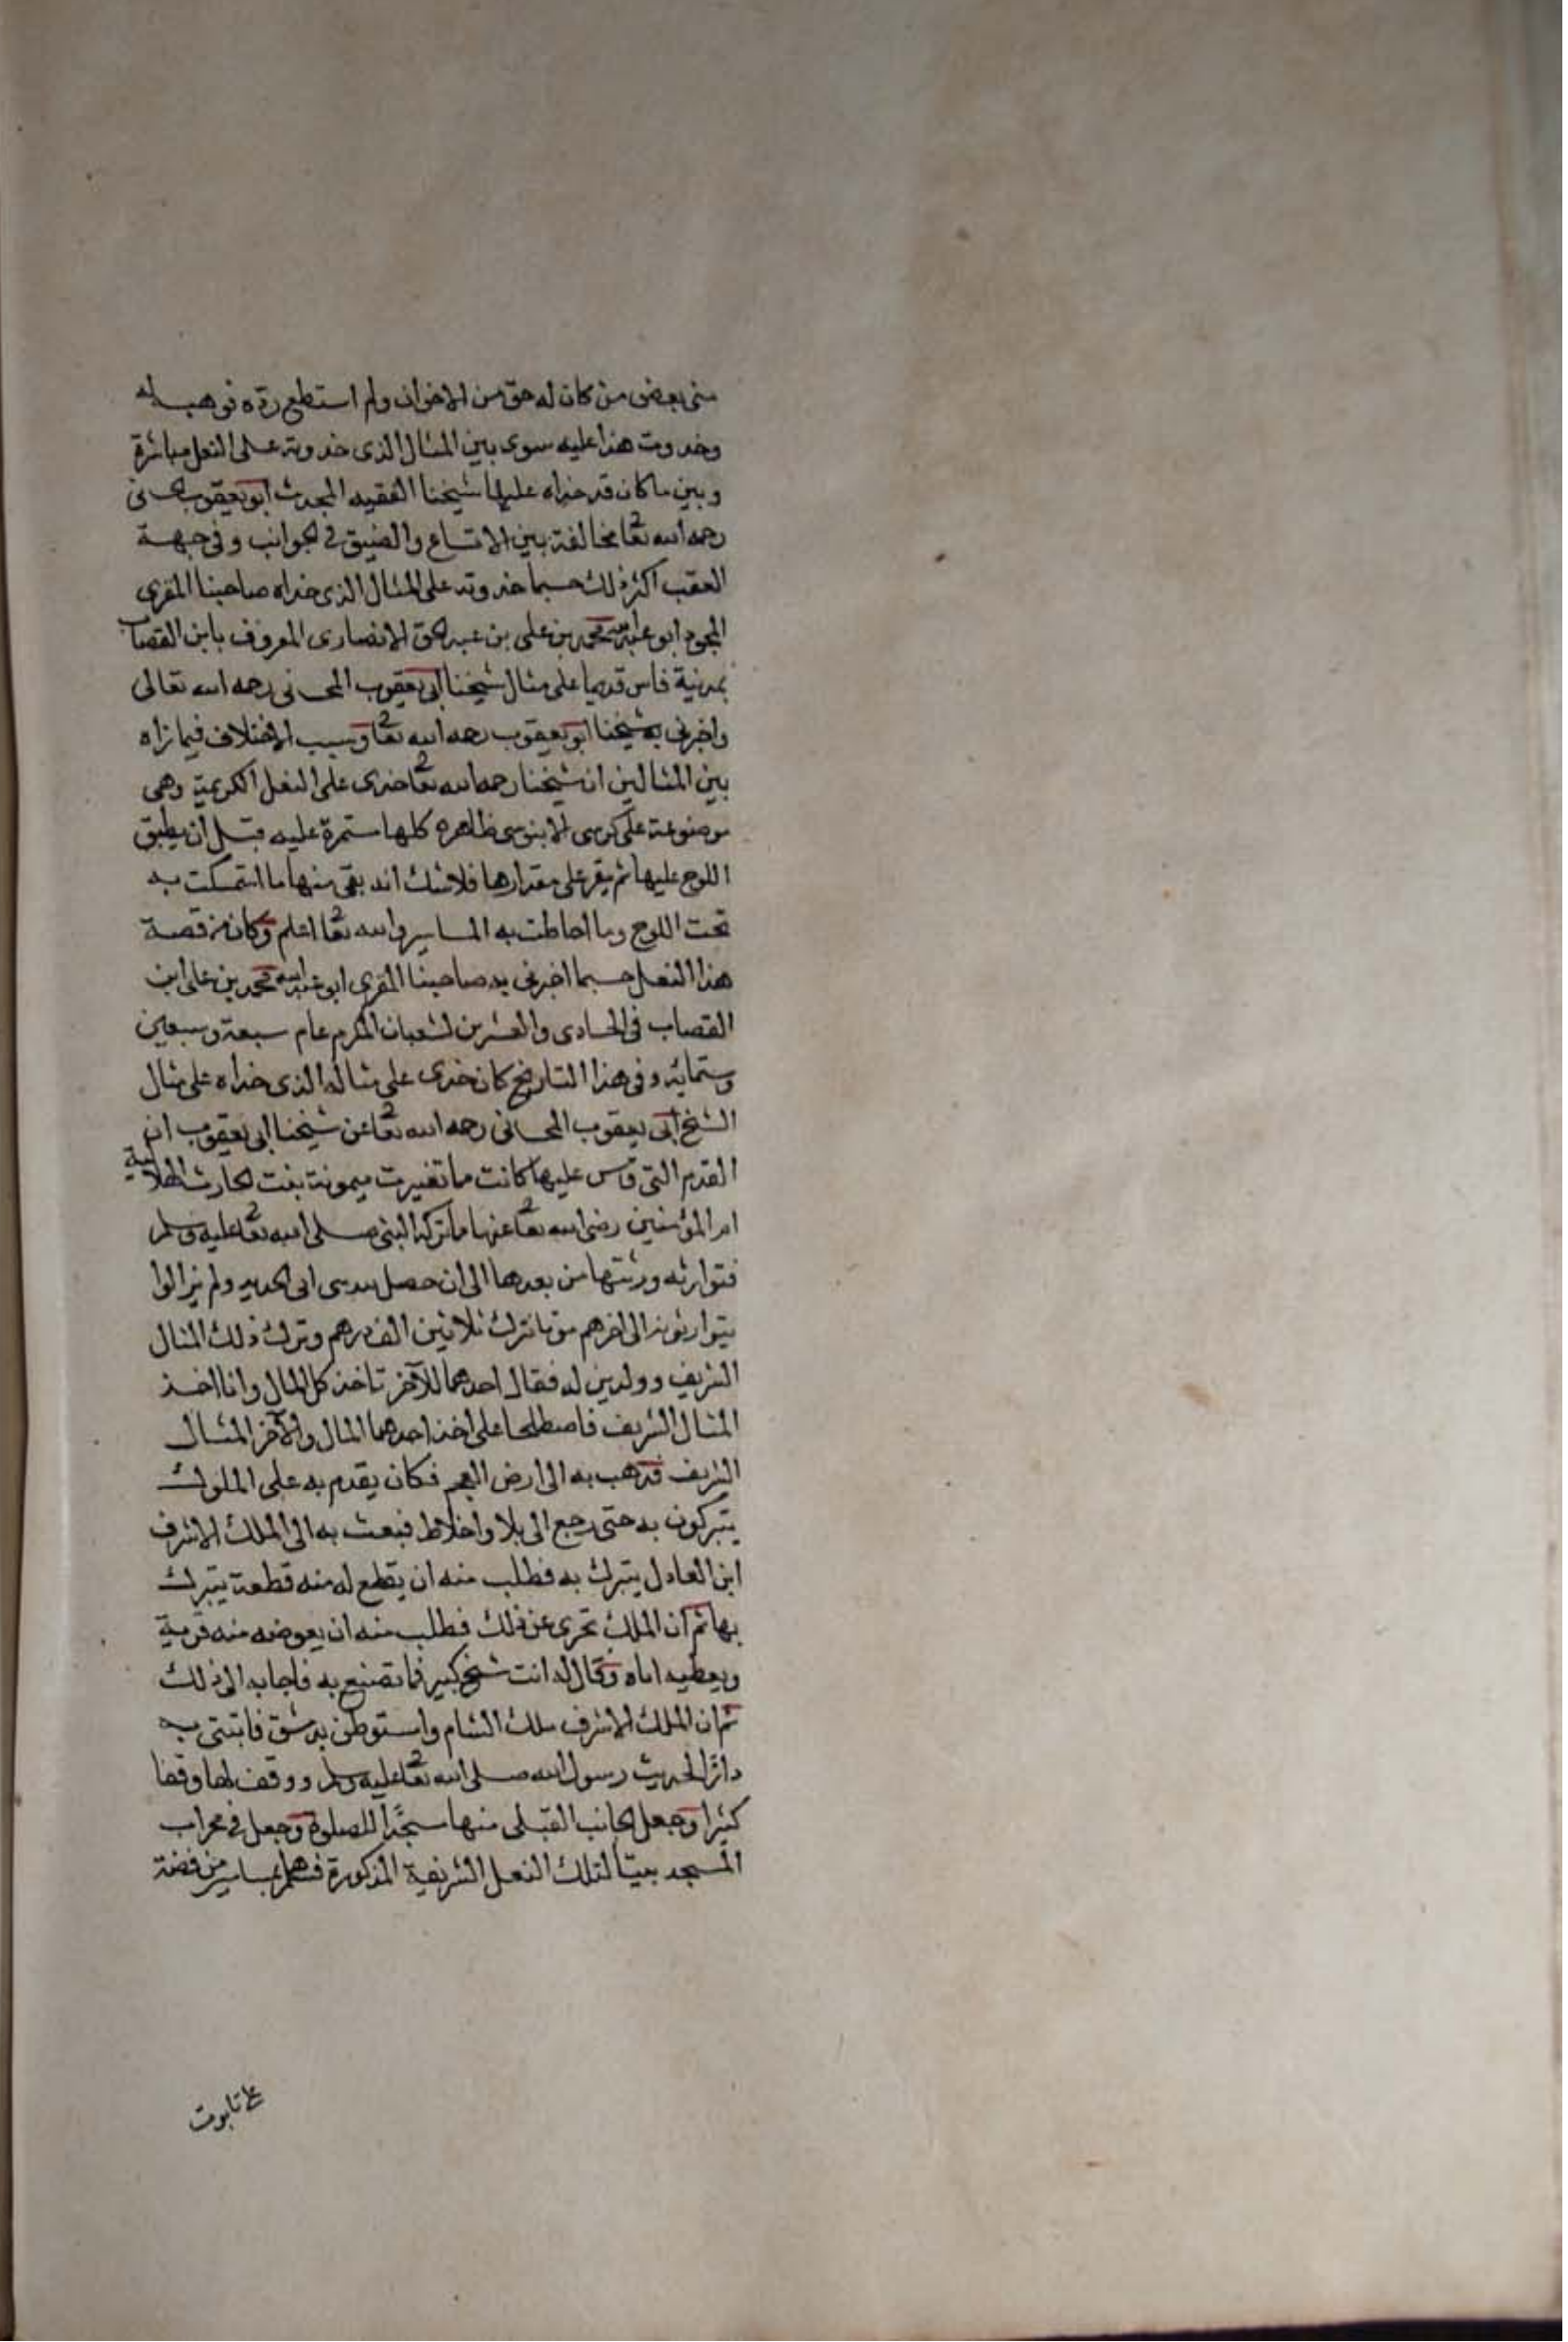 منى بعض من كان له حق من الاخوان ولم استطع رده فوهبه له
وخدوت هذا عليه سوى بين المثال الذى خدوته على النعل مباشرة
وبين ما كان قد خداه عليها شيخنا الفقيه المحدث ابو يعقوب
رحمه الله تعا مخالفة بين الاتساع والضيق فى الجوانب وفى جهة
العقب اكثر ذلك حسبما خدوته على المثال الذى خداه صاحبنا المقرى
المجود ابو عبد الله محمد بن على بن عبد الحق الانصارى المعروف بابن القصاب
بمدينة فاس قديما على مثال شيخنا ابى يعقوب المحسانى رحمه الله تعالى
واخبرنى به شيخنا ابو يعقوب رحمه الله تعا وسبب الاختلاف فيما نراه
بين المثالين ان شيخنا رحمه الله تعا خدى على النعل الكريمة وهى
موضوعة على كرسى الابنوسى ظاهره كلها ستمرة عليه قبل ان يطبق
اللوح عليها ثم يقر على مقدارها فلا شك انه بقى منها ما استمسكت به
تحت اللوح وما احاطت به المسامير والله تعا اعلم وكان من قصة
هذا النعل حسبما اخبرنى به صاحبنا المقرى ابو عبد الله محمد بن على ابن
القصاب فى الحادى والعشرين لشعبان المكرم عام سبعة وسبعين
وستمائة وفى هذا التاريخ كان خدى على مثاله الذى خداه على مثال
الشيخ ابى يعقوب المحسانى رحمه الله تعا عن شيخنا ابى يعقوب ان
القدم التى قاس عليها كانت ما تغيرت ميمونة بنت الحارث الهلالية
ام المؤمنين رضى الله تعا عنها ما تركه النبى صلى الله تعا عليه وسلم
فتوارثه ورثتها من بعدها الى ان حصل بيدى ابى الحديد ولم يزالوا
يتوارثونه الى اخرهم موتا نترك ثلاثين الف درهم وترك ذلك المثال
الشريف وولدين له فقال احدهما للآخر تاخذ كل المال وانا اخذ
المثال الشريف فاصطلحا على اخذ احدهما المال والآخر المثال
الشريف فذهب به الى ارض العجم فكان يقدم به على الملوك
يتبركون به حتى رجع الى بلاد اخلاط فبعث به الى الملك الاشرف
ابن العادل يتبرك به فطلب منه ان يقطع له منه قطعة يتبرك
بها ثم ان الملك تحرى عن ذلك فطلب منه ان يعوضه منه قرية
ويعطيه اياه وقال له انت شيخ كبير فما تصنع به فاجابه الى ذلك
ثم ان الملك الاشرف ملك الشام واستوطن بدمشق فابتنى به
دار الحديث رسول الله صلى الله تعا عليه وسلم ووقف لها وقفا
كثيرا وجعل الجانب القبلى منها مسجدا للصلوة وجعل فى محراب
المسجد بيتا لتلك النعل الشريفة المذكورة فسمر بمسامير من فضة
على تابوت